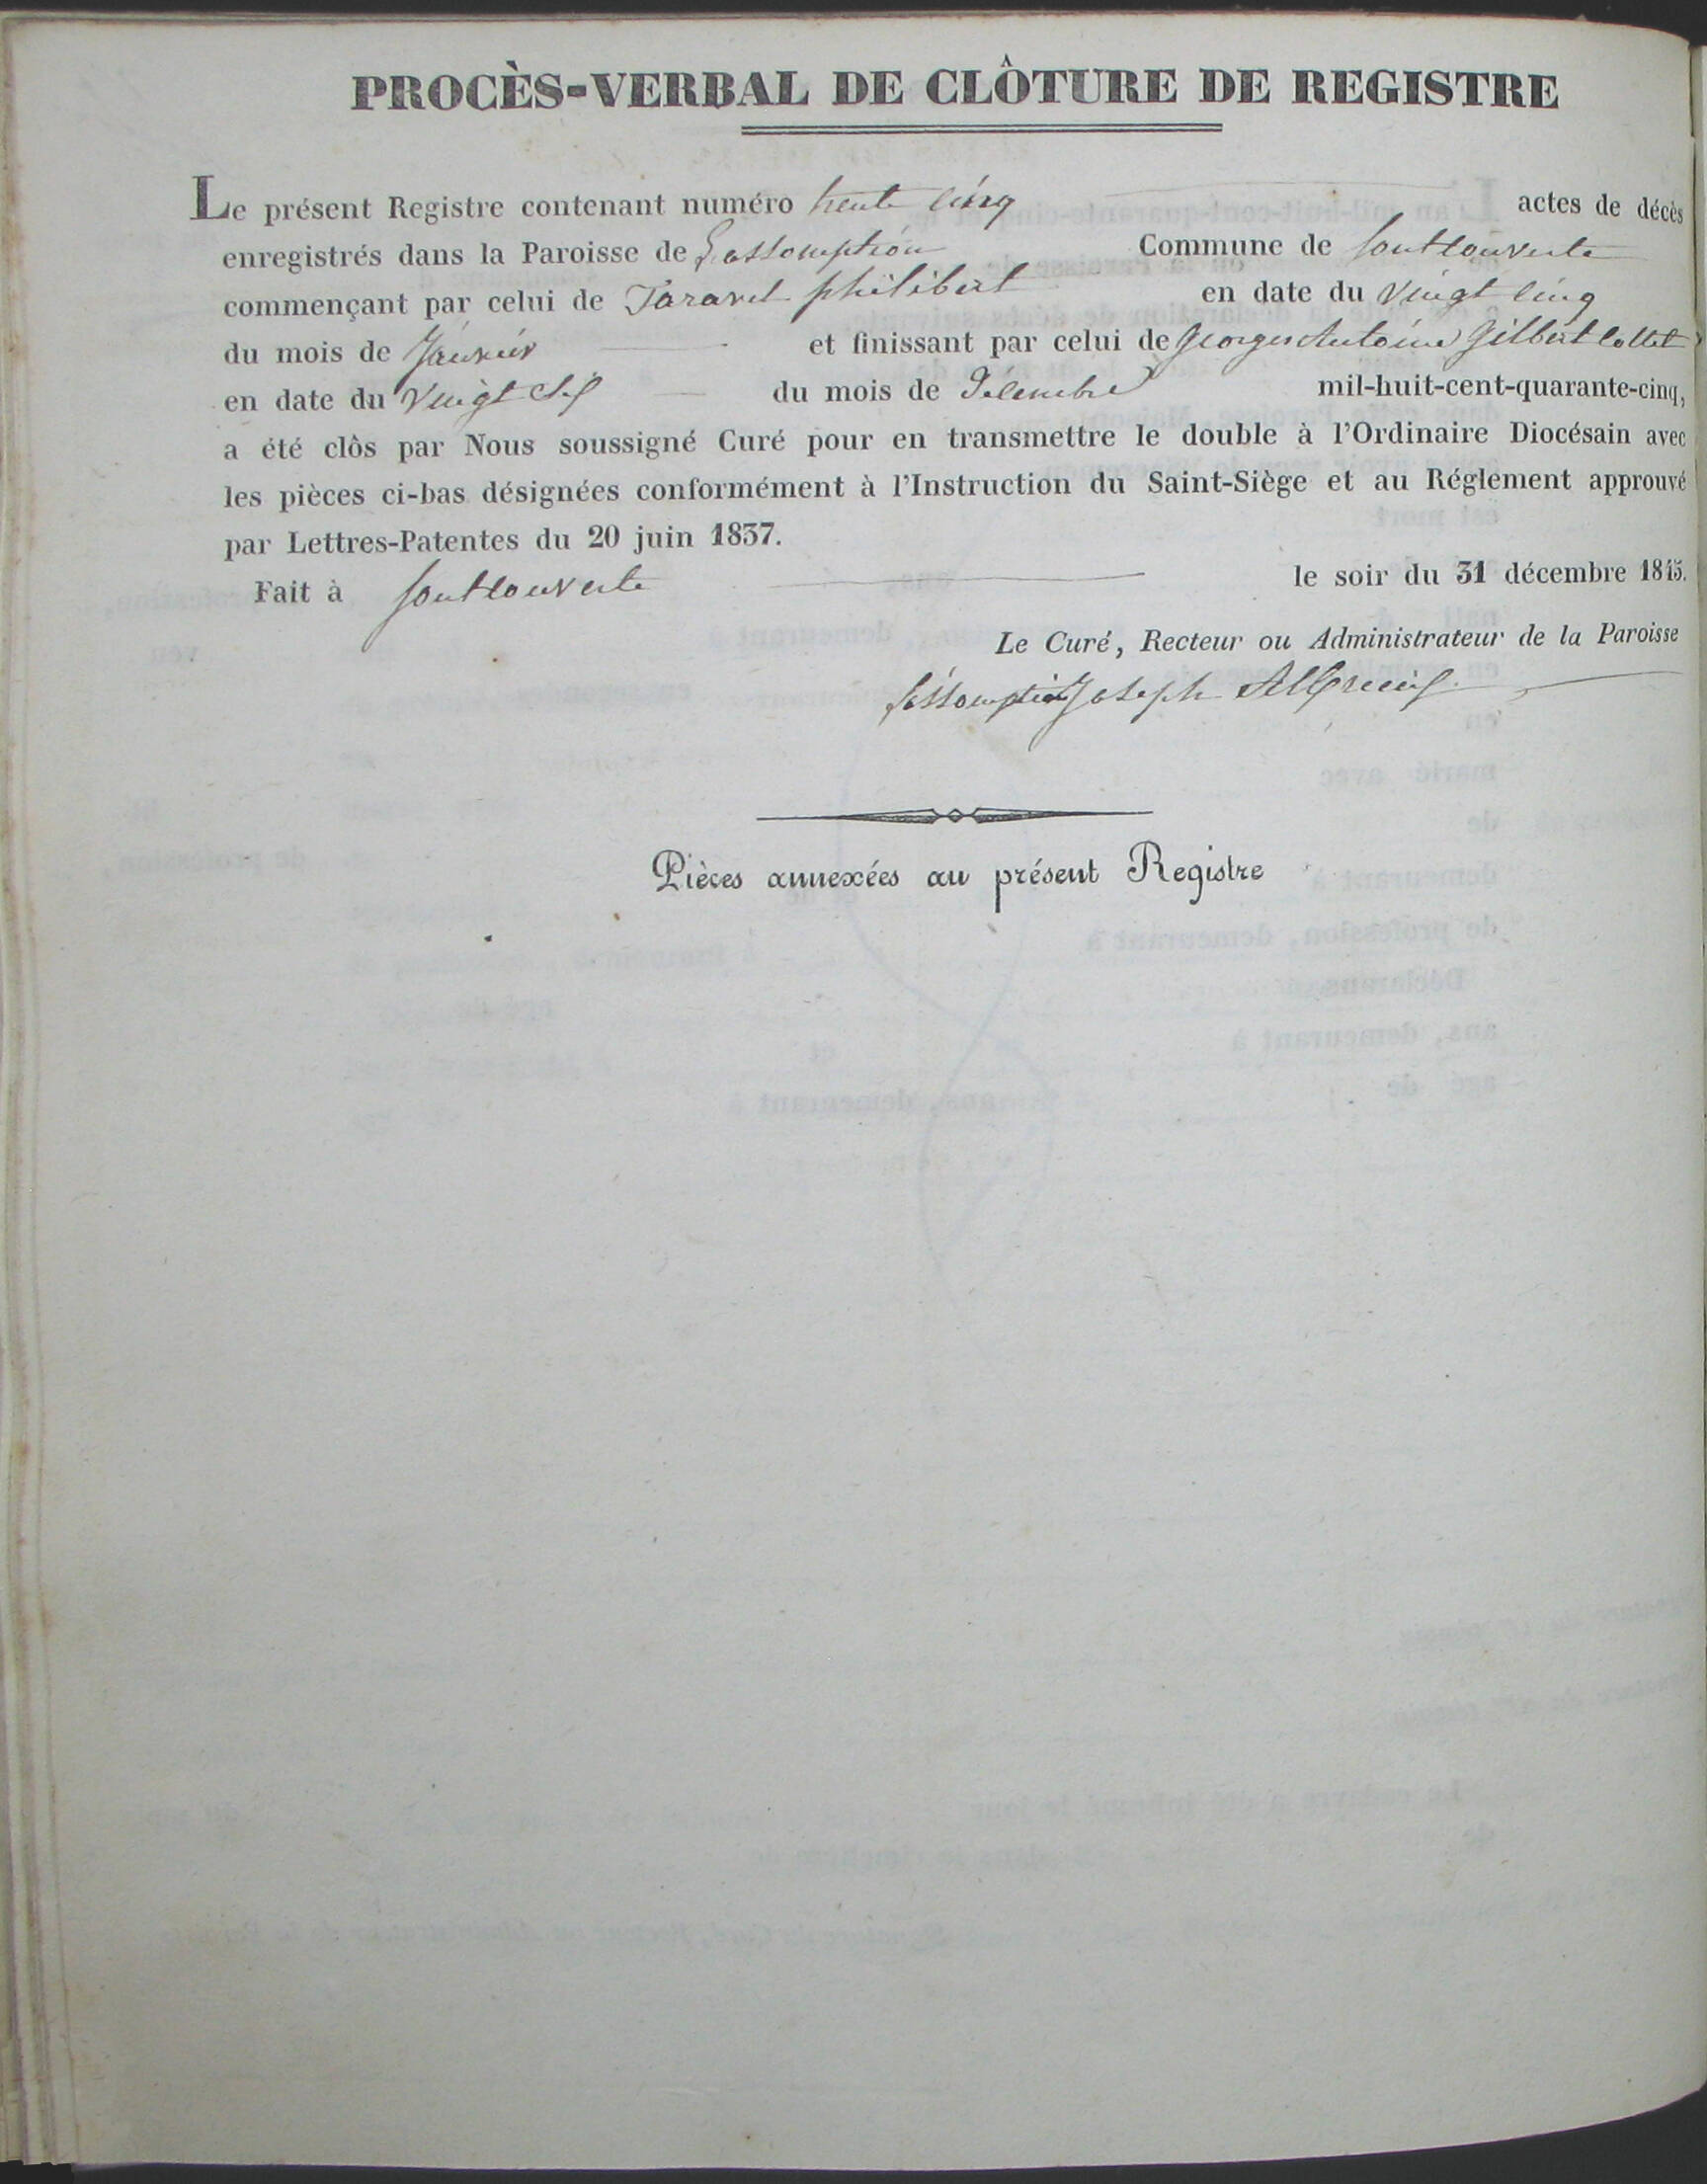 PROCÈS-VERBAL DE CLÔTURE DE REGISTRE
Le présent Registre contenant numéro trente cinq actes de décès
enregistrés dans la Paroisse de L'assomption Commune de Conttouverte
commençant par celui de Taravel philibert en date du vingt cinq
du mois de Janvier et finissant par celui de Georges Antoine Gilbert Collet
en date du vingt six du mois de Décembre mil-huit-cent-quarante-cinq,
a été clôs par Nous soussigné Curé pour en transmettre le double à l'Ordinaire Diocésain avec
les pièces ci-bas désignées conformément à l'Instruction du Saint-Siège et au Réglement approuvé
par Lettres-Patentes du 20 juin 1837.
Fait à le soir du 31 décembre 1845.
Le Curé, Recteur ou Administrateur de la Paroisse
Joseph
Pièces annexées au présent Registre